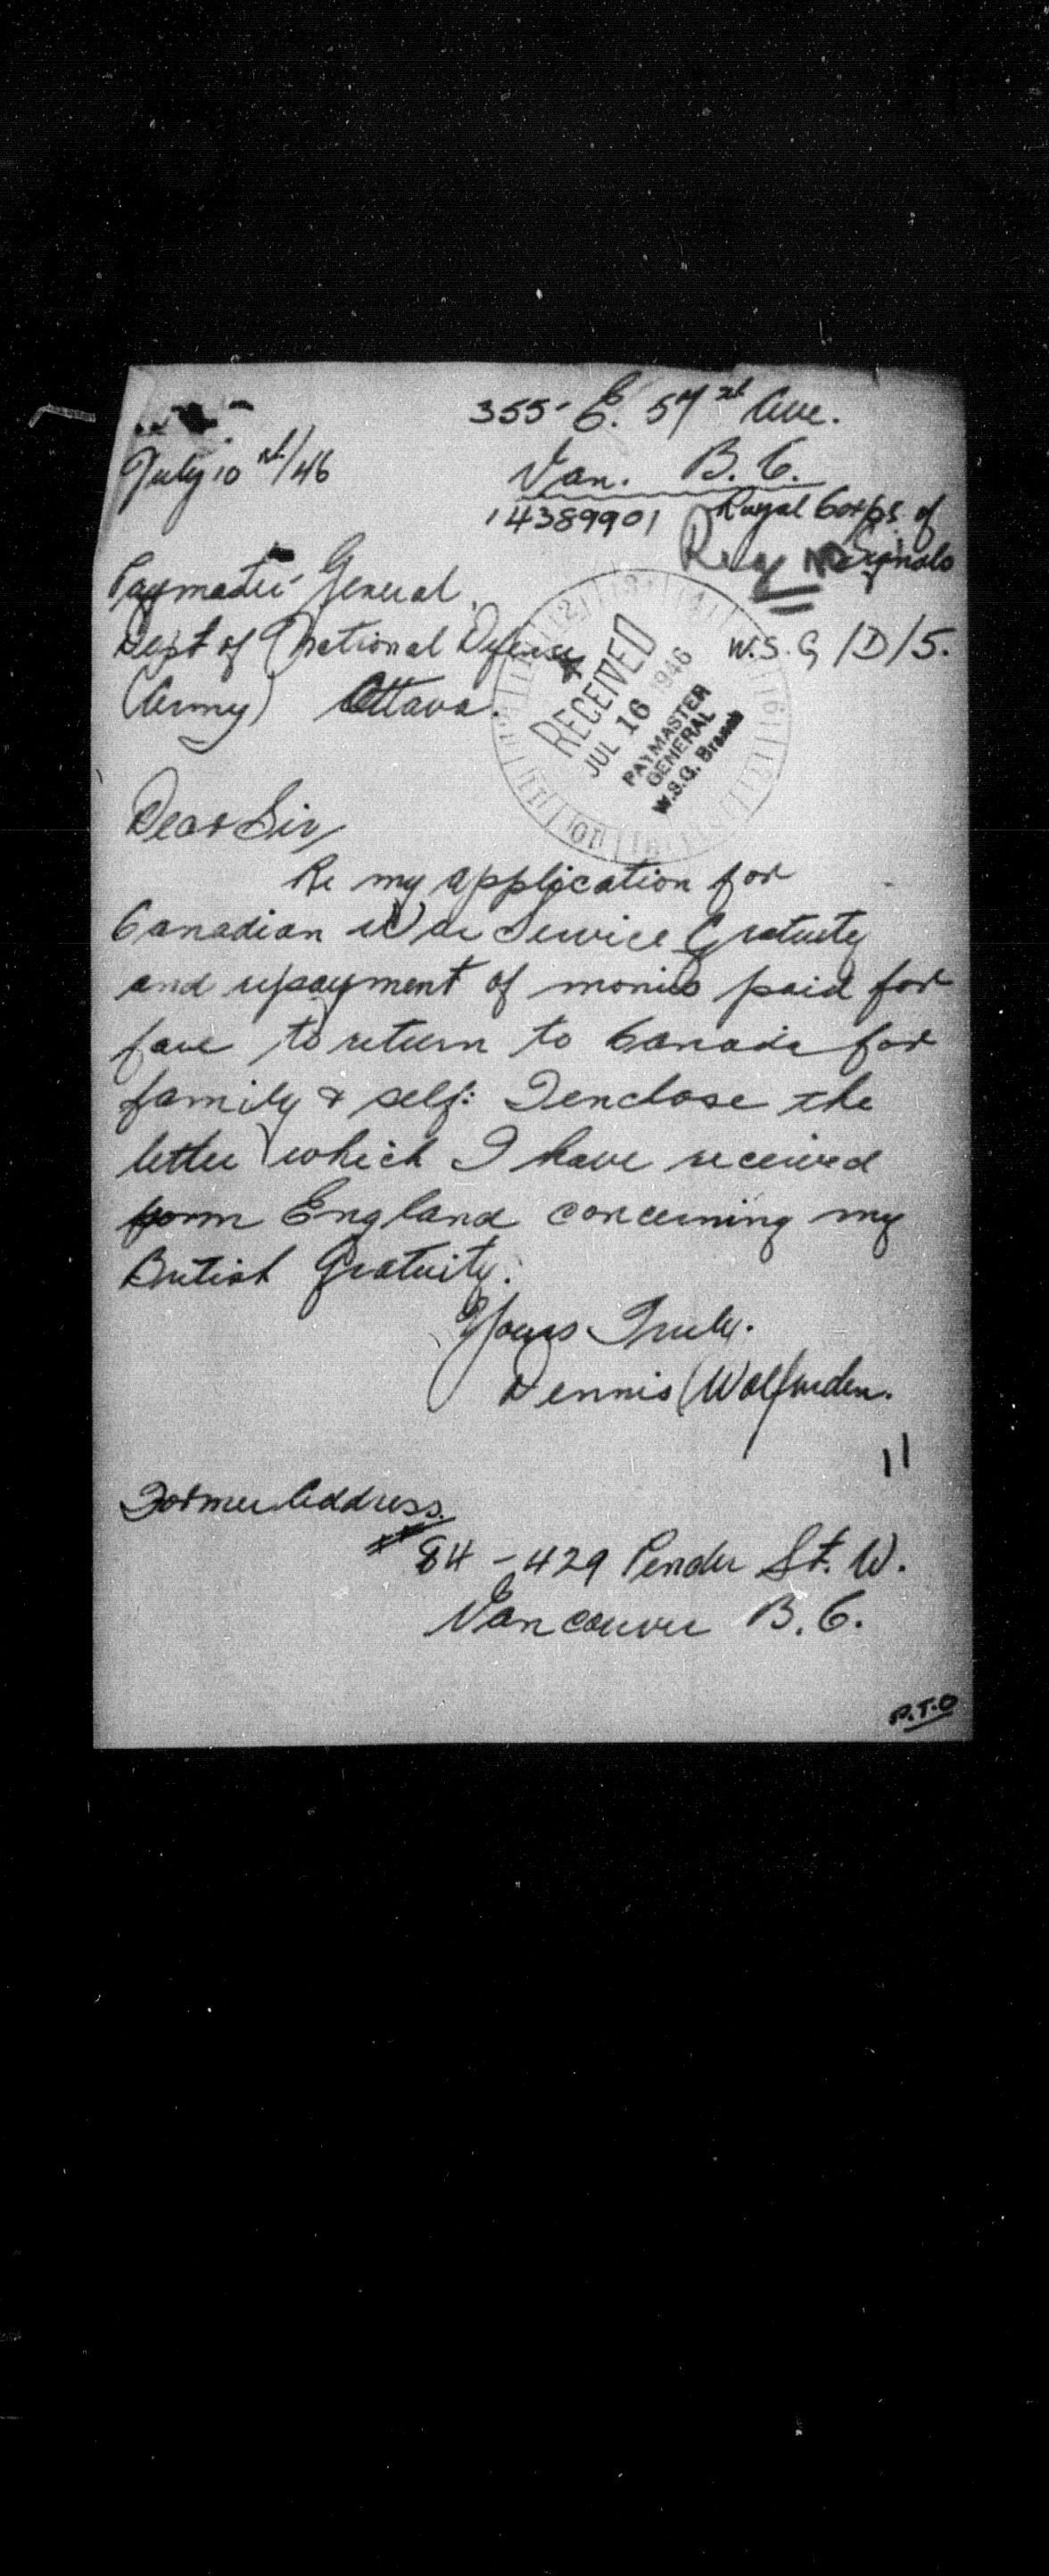 355- E. 57 st Ave.
July 10 st/46
Van. B.C.
14389901 Royal Corps of
Signals
Reg No
Paymaster General
Dept of National Defense
W.S.G/D/5.
(Army) Ottawa.
RECEIVED
JUL 16 1946
PAYMASTER
GENERAL
W.S.G. Branch
Dear Sir,
Re my application for
Canadian War Service Gratuity
and repayment of monies paid for
fare to return to Canada for
family & self: I enclose the
letter which I have received
form England concerning my
British Gratuity.
Yours Truly.
Dennis Wolfenden.
11
Former Address.
84 - 429 Pender St. W.
Vancouver B.C.
P.T.O